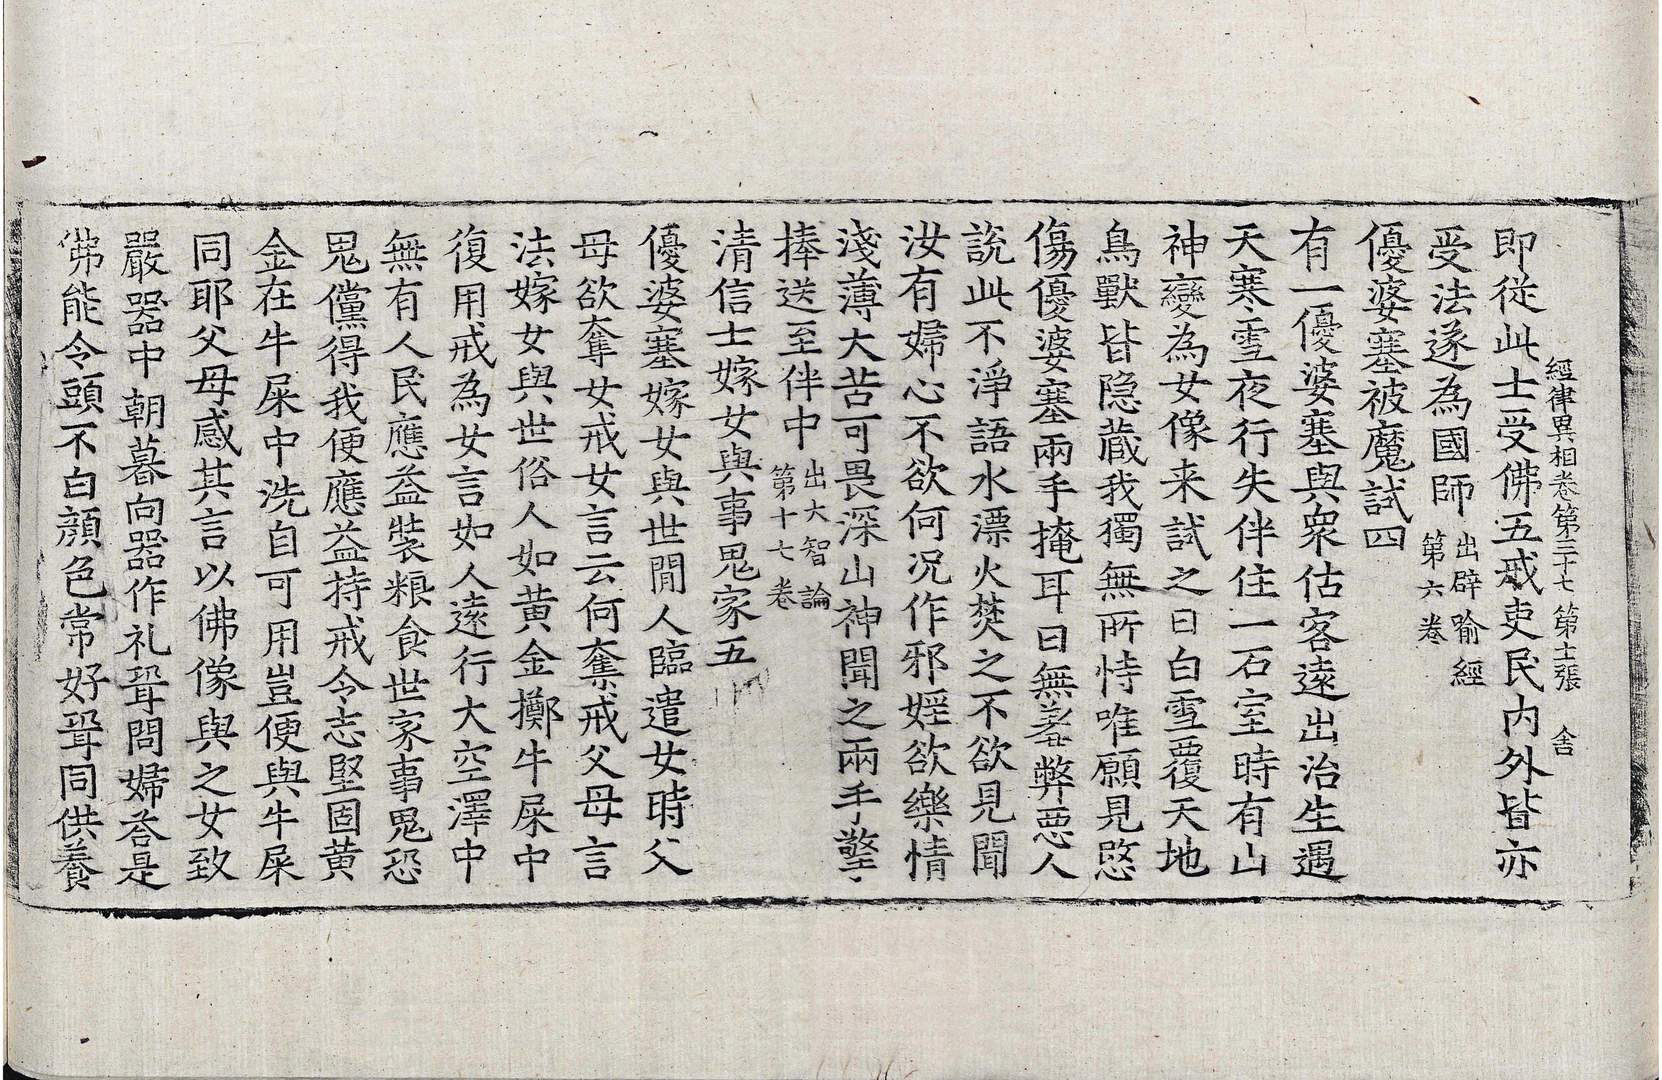 經律異相卷第三十七 第十一張 舍
即從此士受佛五戒吏民內外皆亦
受法遂為國師 出辟喻經第六卷
優婆塞被魔試四
有一優婆塞與衆估客遠出治生遇
天寒雪夜行失伴住一石室時有山
神變為女像来試之曰白雪覆天地
鳥獸皆隐藏我獨無所恃唯願見愍
傷優婆塞兩手掩耳曰無羞弊惡人
說此不淨語水漂火焚之不欲見聞
汝有婦心不欲何況作邪婬欲樂情
淺薄大苦可畏深山神聞之兩手擎
捧送至伴中 出大智論第十七卷
清信士嫁女與事鬼家五
優婆塞嫁女與世間人臨遣女時父
母欲奪女戒女言云何奪戒父母言
法嫁女與世俗人如黄金擲牛屎中
復用戒為女言如人遠行大空澤中
無有人民應益裝粮食世家事鬼恐
鬼儻得我便應益持戒令志堅固黄
金在牛屎中洗自可用豈便與牛屎
同耶父母感其言以佛像與之女致
嚴器中朝暮向器作礼聟問婦荅是
佛能令頭不白顏色常好聟同供養